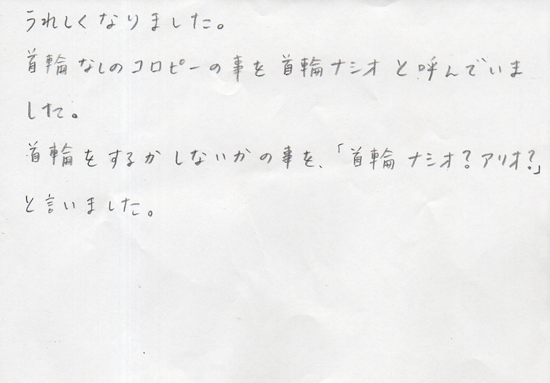 うれしくなりました。
首輪なしのコロピーの事を首輪ナシオと呼んでいま
した。
首輪をするかしないかの事を、「首輪ナシオ?アリオ?」
と言いました。